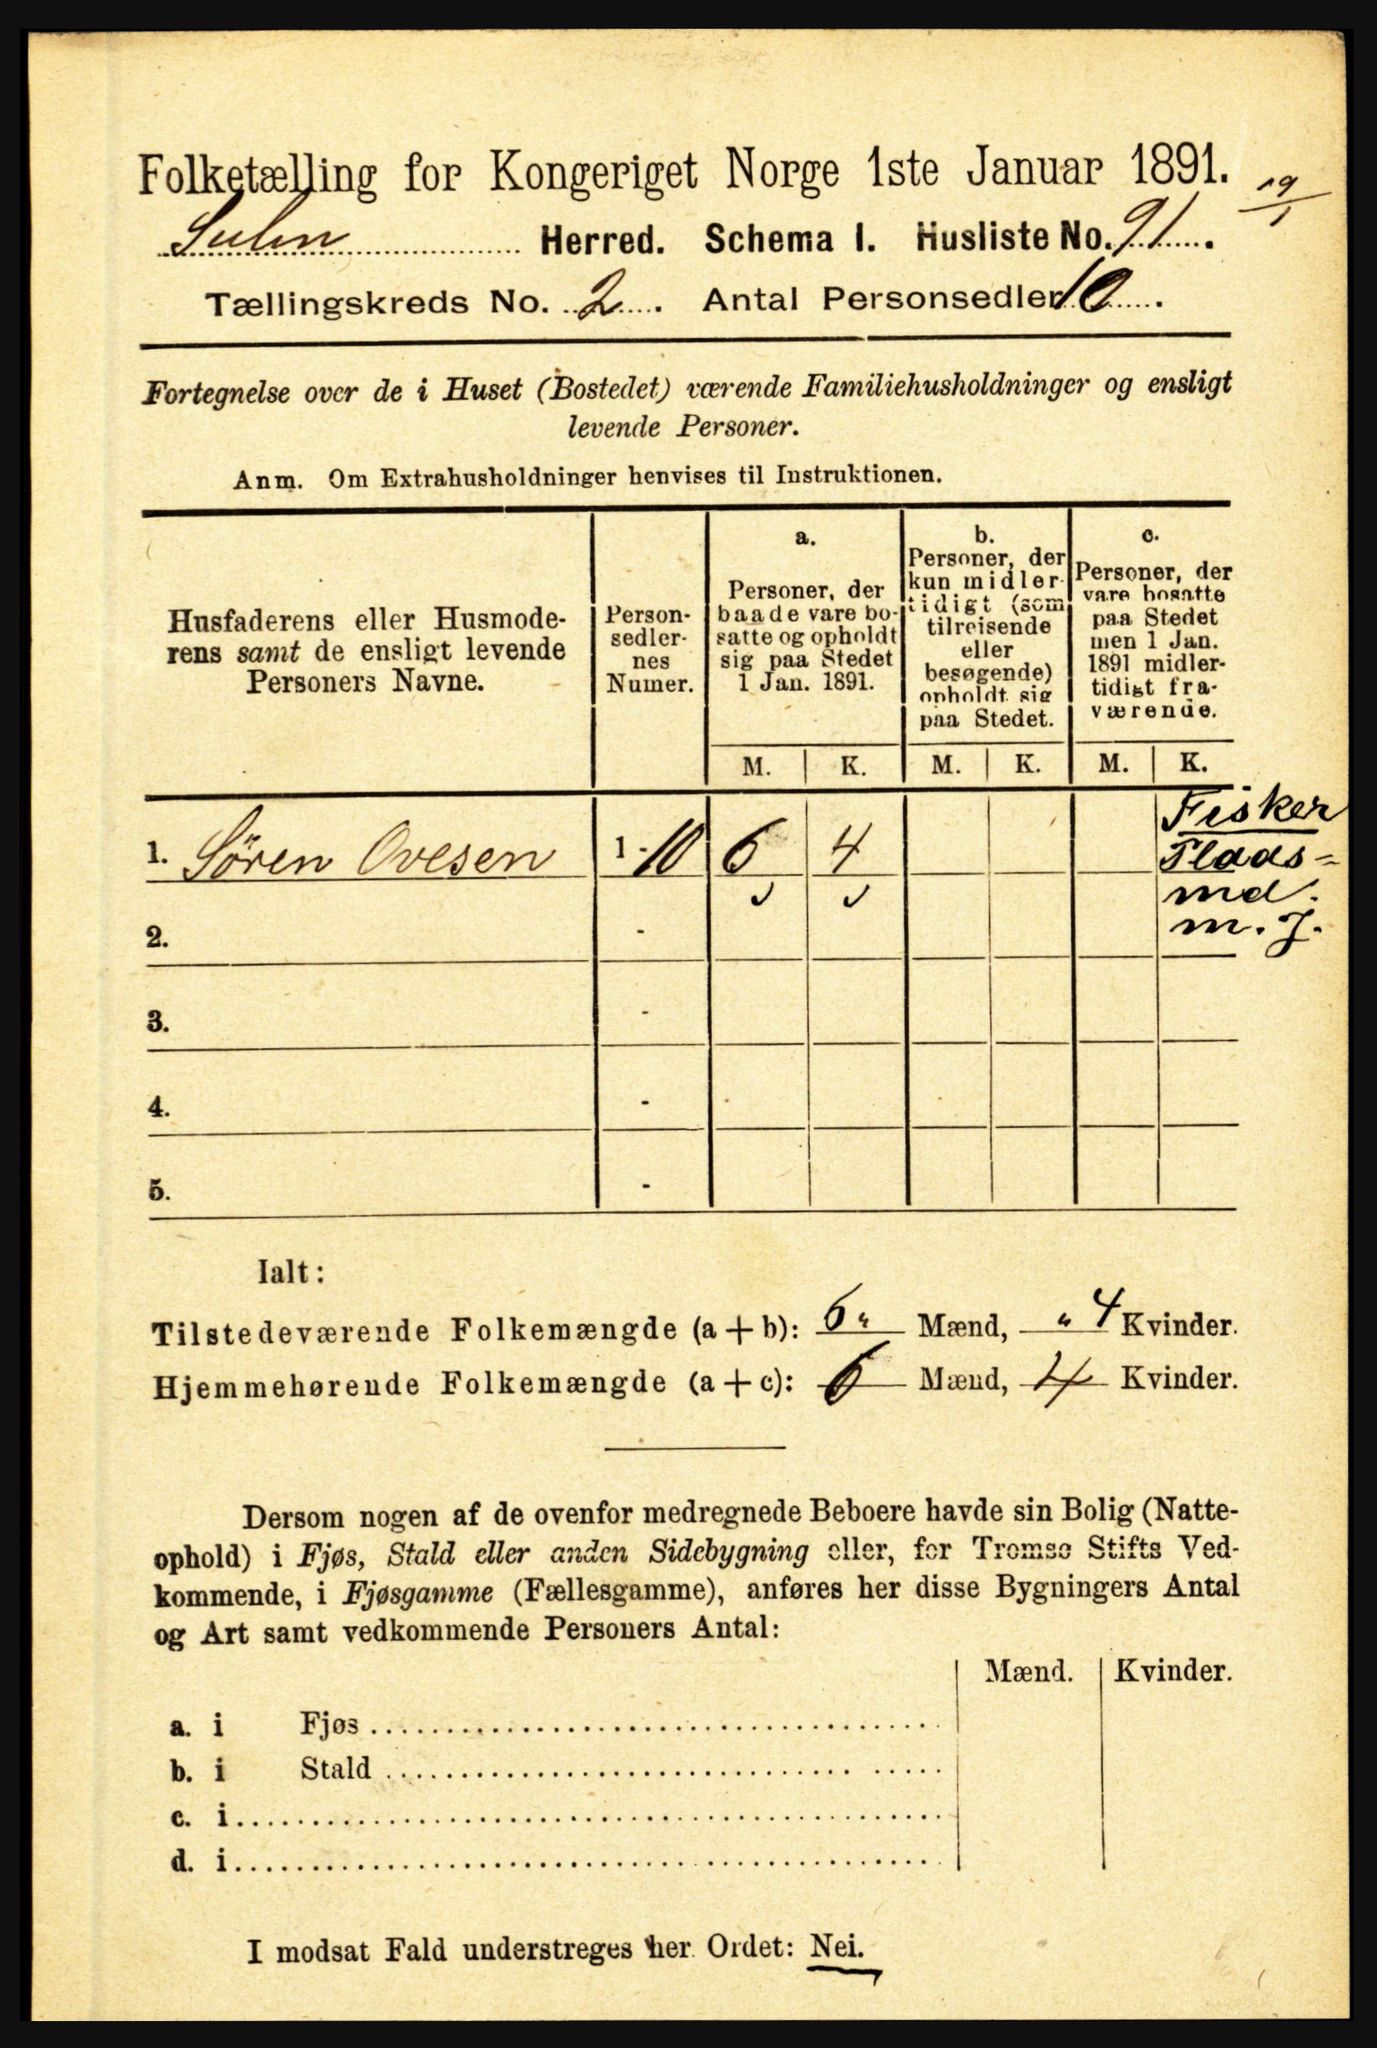 Folketælling for Kongeriget Norge 1ste Januar 1891.
19/1
Sulen Herred. Schema I. Husliste No. 91.
Tællingskreds No. 2. Antal Personsedler 10.
Fortegnelse over de i Huset (Bostedet) værende Familiehusholdninger og ensligt
levende Personer.
Anm. Om Extrahusholdninger henvises til Instruktionen.
Husfaderens eller Husmode-
rens samt de ensligt levende
Personers Navne.
Person-
sedler-
nes
Numer.
a.
Personer, der
baade vare bo-
satte og opholdt
sig paa Stedet
1 Jan. 1891.
b.
Personer, der
kun midler-
tidigt (som
tilreisende
eller
besøgende)
opholdt sig
paa Stedet.
c.
Personer, der
vare bosatte
paa Stedet
men 1 Jan.
1891 midler-
tidigt fra-
værende.
M. K. M. K. M. K.
1. Søren Ovesen 1-10 6 4
Fisker
Plads-
md.
m. J.
2. -
3. -
4. -
5. -
Ialt:
Tilstedeværende Folkemængde (a + b): 6 " Mænd, " 4 Kvinder.
Hjemmehørende Folkemængde (a + c): 6 Mænd, 4 Kvinder.
Dersom nogen af de ovenfor medregnede Beboere havde sin Bolig (Natte-
ophold) i Fjøs, Stald eller anden Sidebygning eller, for Tromsø Stifts Ved-
kommende, i Fjøsgamme (Fællesgamme), anføres her disse Bygningers Antal
og Art samt vedkommende Personers Antal:
Mænd. Kvinder.
a. i Fjøs
b. i Stald
c. i
d. i
I modsat Fald understreges her Ordet: Nei.